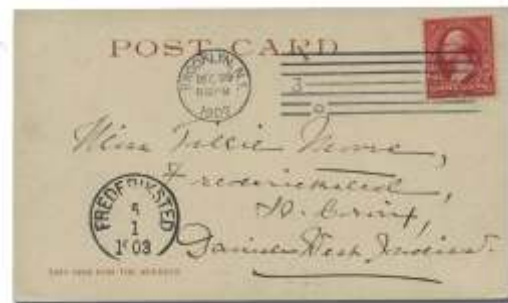 POST CARD
BROOKLYN, N.Y.
1903
3
Miss Tillie Moore,
Frederiksted,
St. Croix,
Danish West Indies.
FREDERIKSTED
5
1
1903
THIS SIDE FOR THE ADDRESS